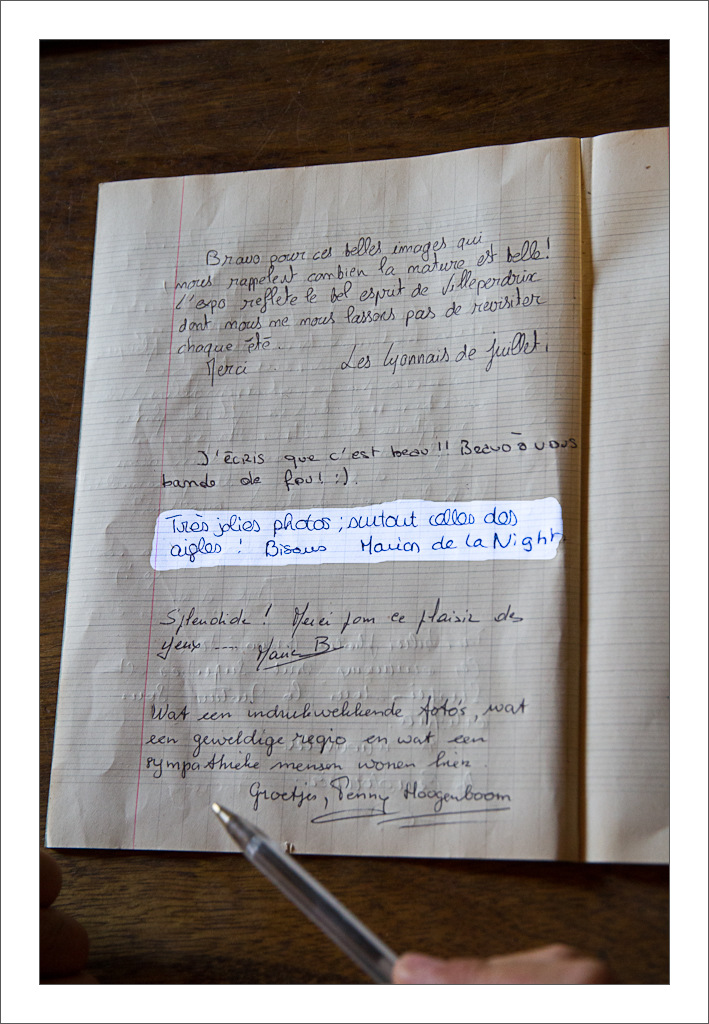 Bravo pour ces belles images qui
nous rappelent combien la nature est belle!
L'expo reflète le bel esprit de Villeperdrix
dont nous ne nous lassons pas de revisiter
chaque été.
Merci Les Lyonnais de juillet.
J'écris que c'est beau!! Bravo à vous
bande de fou! :).
Très jolies photos; surtout celles des
aigles! Bisous Marion de la Night
Splendide! Merci pour ce plaisir des
yeux ---- Marie B.
Wat een indrukwekkende foto's, wat
een geweldige regio en wat een
sympathieke mensen wonen hier.
Groetjes, Penny Hoogenboom